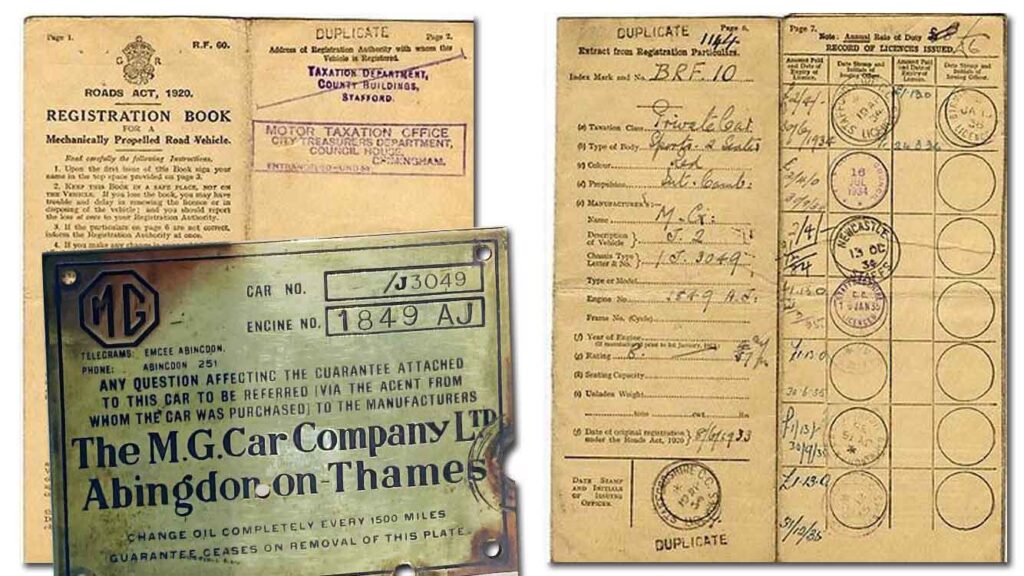 DUPLICATE
Page 1.
Page 2.
R.F. 60.
G R
ROADS ACT, 1920.
REGISTRATION BOOK
FOR A
Mechanically Propelled Road Vehicle.
Read carefully the following Instructions.
1. Upon the first issue of this Book sign your
name in the top space provided on page 3.
2. KEEP THIS BOOK IN A SAFE PLACE, NOT ON
THE VEHICLE. If you lose the book, you may have
trouble and delay in renewing the licence or in
disposing of the vehicle; and you should report
the loss at once to your Registration Authority.
3. If the particulars on page 6 are not correct,
inform the Registration Authority at once.
4. If you make any change
Address of Registration Authority with whom the
Vehicle is Registered.
TAXATION DEPARTMENT,
COUNTY BUILDINGS,
STAFFORD.
MOTOR TAXATION OFFICE
CITY TREASURERS DEPARTMENT,
COUNCIL HOUSE,
BIRMINGHAM.
MG
CAR NO. /J3049
ENGINE NO. 1849 AJ
TELEGRAMS: EMCEE ABINGDON.
PHONE: ABINGDON 251
ANY QUESTION AFFECTING THE GUARANTEE ATTACHED
TO THIS CAR TO BE REFERRED (VIA THE AGENT FROM
WHOM THE CAR WAS PURCHASED) TO THE MANUFACTURERS
The M.G. Car Company LTD
Abingdon-on-Thames
CHANGE OIL COMPLETELY EVERY 1500 MILES
GUARANTEE CEASES ON REMOVAL OF THIS PLATE.
DUPLICATE
Page 6.
1144
Extract from Registration Particulars.
Index Mark and No. BRF. 10
(a) Taxation Class Private Car
(b) Type of Body Sports 2 Seater
(c) Colour Red
(d) Propulsion Int. Comb:
(e) MANUFACTURER'S:
Name M.G.
Description of Vehicle } J. 2
Chassis Type Letter & No. } J. 3049
Type or Model
Engine No. 1849 A.J.
Frame No. (Cycle)
(f) Year of Engine
(g) Rating 8.
(h) Seating Capacity
(i) Unladen Weight
tons cwt. lbs
(j) Date of original registration
under the Roads Act, 1920 } 8/6/1933
DATE STAMP
AND INITIALS
OF ISSUING
OFFICER.
DUPLICATE
Page 7.
Note: Annual Rate of Duty
RECORD OF LICENCES ISSUED.
Amount Paid
and Date of
Expiry of
Licence.
Date Stamp and
Initials of
Issuing Officer.
Amount Paid
and Date of
Expiry of
Licence.
Date Stamp and
Initials of
Issuing Officer.
£2/4/-
30/6/1934
£1.13.0
16
JUL
1934
2/4/-
NEWCASTLE
13 OC
STAFFS
£1.13.0
LICENCES
£1.13.0
30.6.35
£1/13/-
30/9/35
£1.13.0
31/12/35